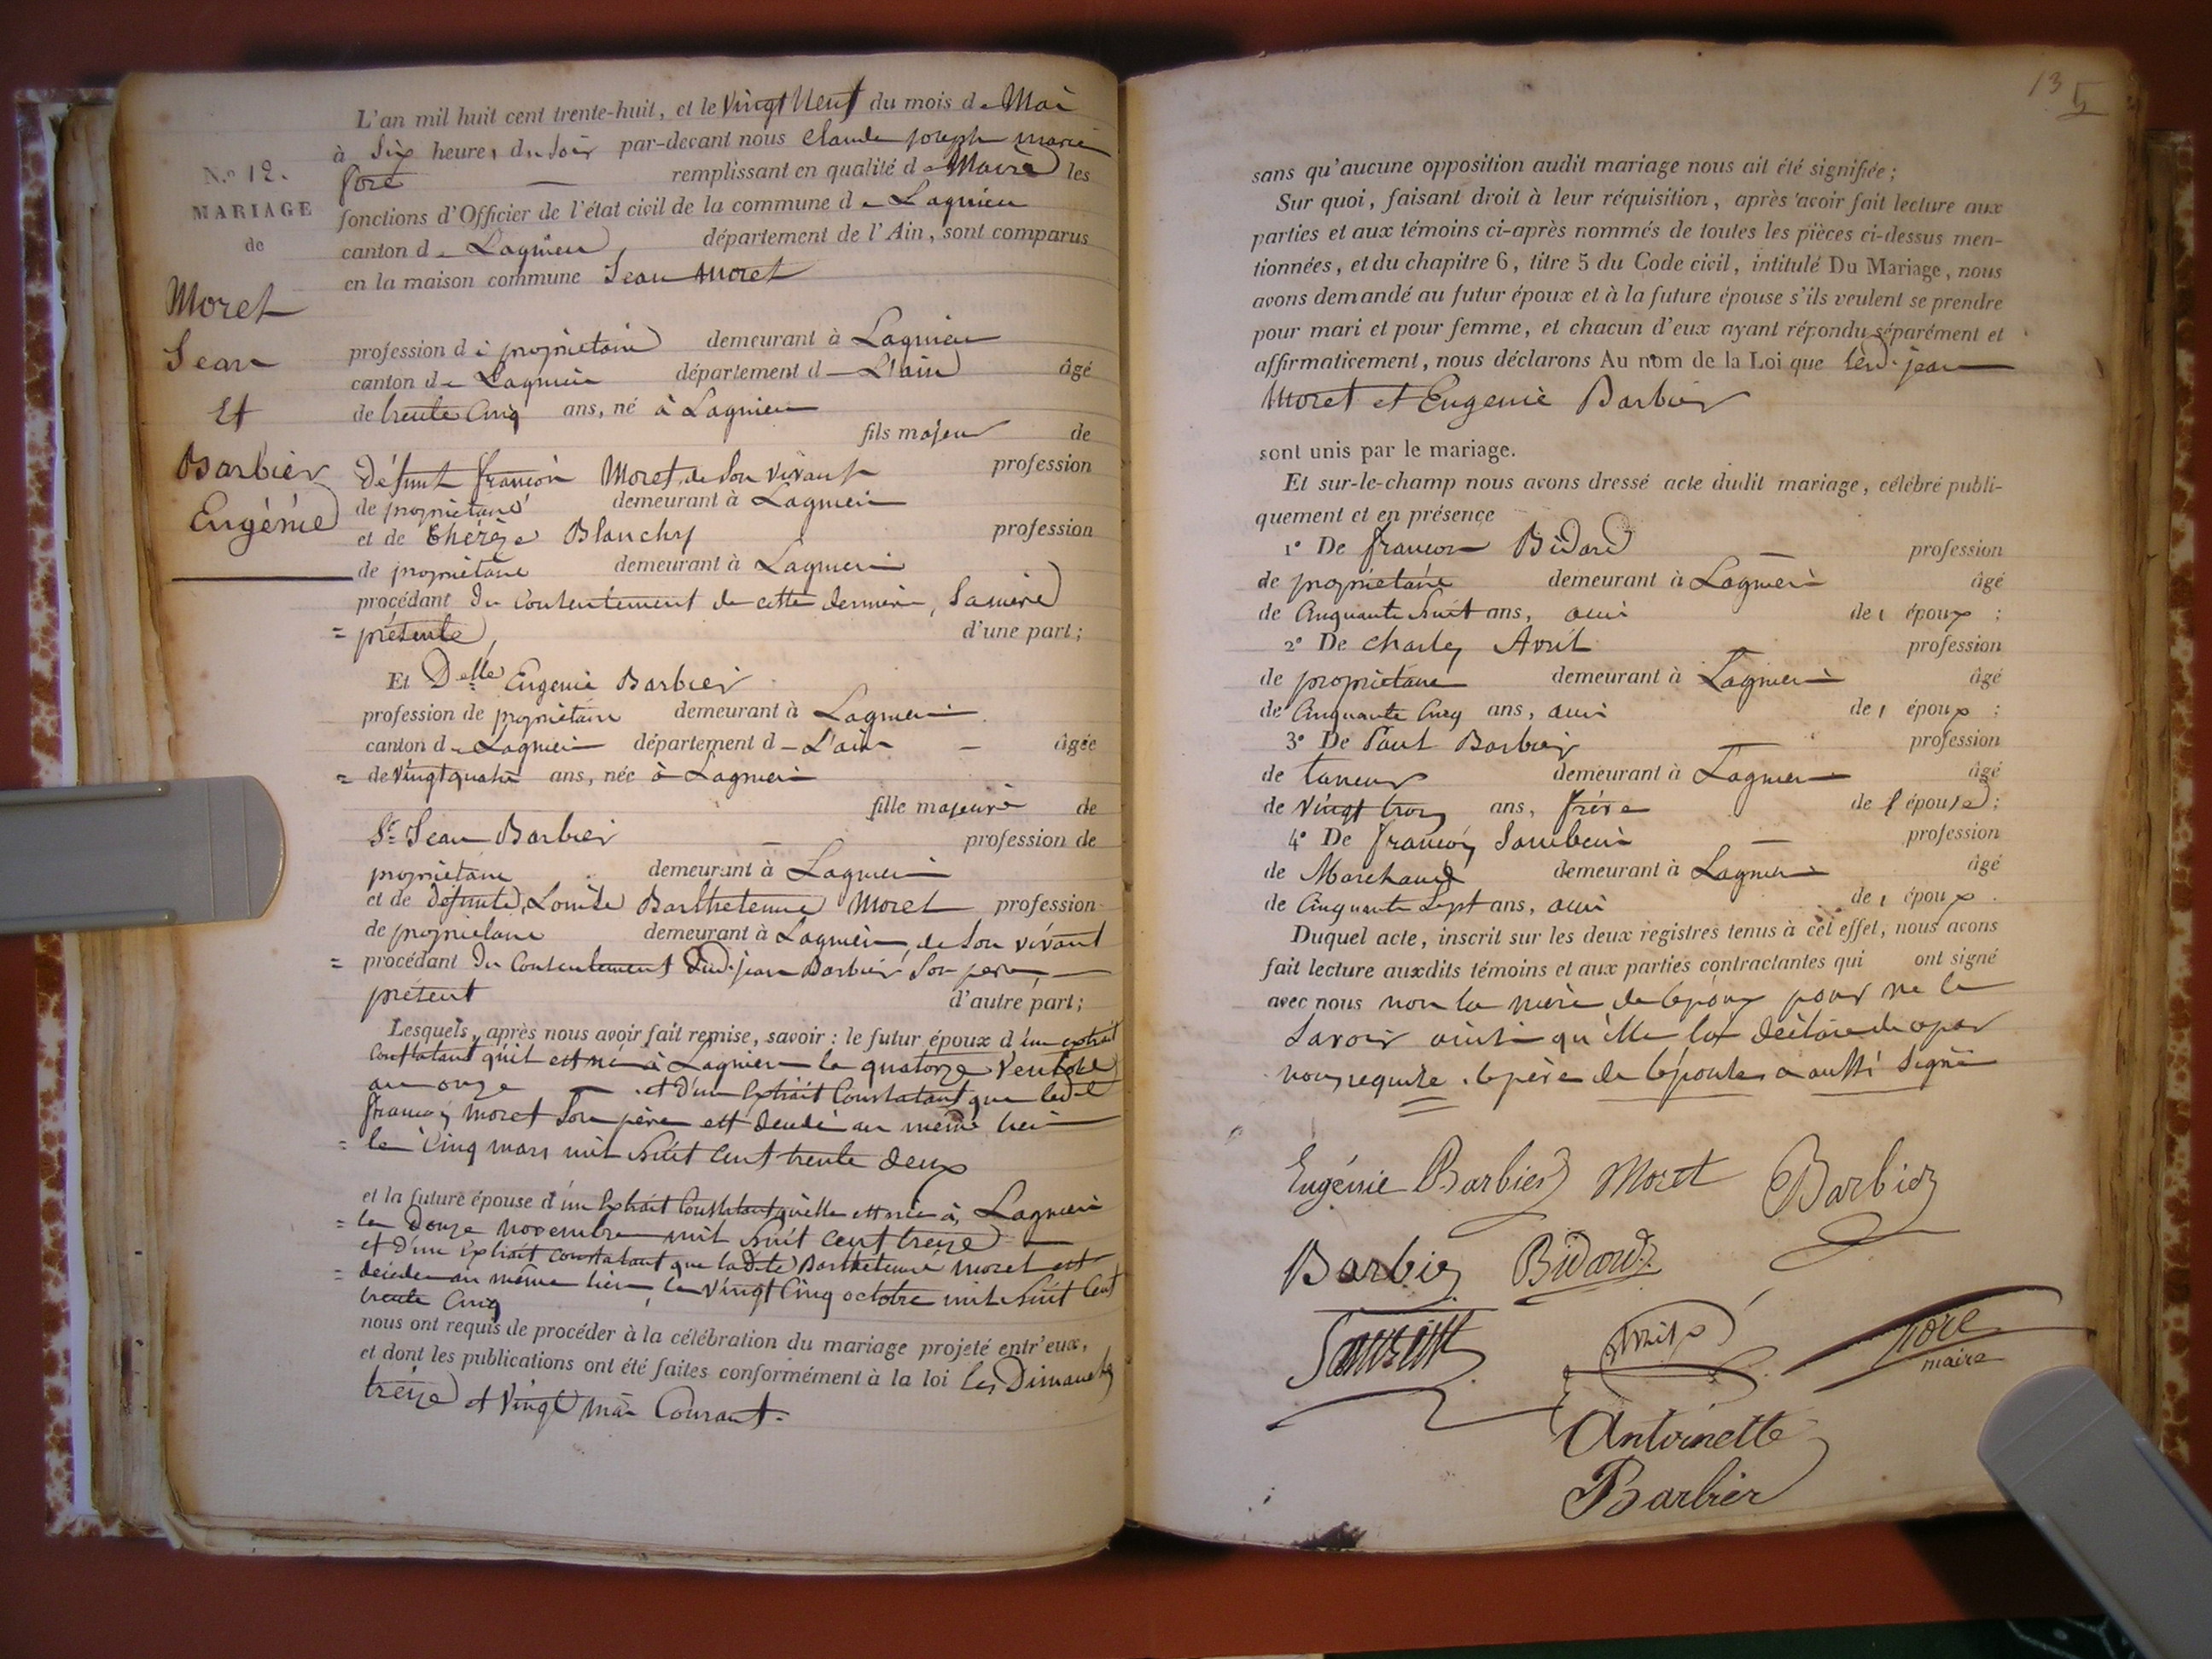 N.º 12.
MARIAGE
de
Moret
Jean
Et
Barbier
Eugénie
L'an mil huit cent trente-huit, et le vingt Neuf du mois de Mai
à Six heures du Soir par-devant nous Claude joseph marie
remplissant en qualité de Maire les
fonctions d'Officier de l'état civil de la commune de Lagnieu
canton de Lagnieu, département de l'Ain, sont comparus
en la maison commune Jean Moret
profession de propriétaire demeurant à Lagnieu
canton de Lagnieu département d L'ain âgé
de trente Cinq ans, né à Lagnieu
fils majeur de
défunt françois Moret, de Son vivant profession
de propriétaire demeurant à Lagnieu
et de Thérèze Blanchy profession
de propriétaire demeurant à Lagnieu
procédant du Consentement de cette dernière, Sa mère
= présente, d'une part;
Et Delle Eugenie Barbier
profession de propriétaire demeurant à Lagnieu
canton de Lagnieu département d L'ain âgée
= de vingt quatre ans, née à Lagnieu
fille majeure de
Sr Jean Barbier profession de
propriétaire demeurant à Lagnieu
et de défunte, Louise Barthelemie Moret profession
de propriétaire demeurant à Lagnieu, de Son vivant
= procédant du Consentement dud. jean Barbier, Son père,
présent d'autre part;
Lesquels, après nous avoir fait remise, savoir : le futur époux d'un extrait
Constatant qu'il est né à Lagnieu le quatorze Ventose
an onze et d'un Extrait Constatant que ledit
françois Moret Son père est décédé au même lieu
= le Cinq mars mil huit Cent trente deux
et la future épouse d'un Extrait Constatant qu'elle est née à Lagnieu
= le Douze novembre mil huit Cent treize
et d'un Extrait constatant que ladite Barthelemie Moret est
= décédée au même lieu, le Vingt Cinq octobre mil huit Cent
trente Cinq
nous ont requis de procéder à la célébration du mariage projeté entr'eux,
et dont les publications ont été faites conformément à la loi les Dimanches
treize et Vingt mai Courant.
13 5
sans qu'aucune opposition audit mariage nous ait été signifiée;
Sur quoi, faisant droit à leur réquisition, après avoir fait lecture aux
parties et aux témoins ci-après nommés de toutes les pièces ci-dessus men-
tionnées, et du chapitre 6, titre 5 du Code civil, intitulé Du Mariage, nous
avons demandé au futur époux et à la future épouse s'ils veulent se prendre
pour mari et pour femme, et chacun d'eux ayant répondu séparément et
affirmativement, nous déclarons Au nom de la Loi que lesd. jean
Moret et Eugenie Barbier
sont unis par le mariage.
Et sur-le-champ nous avons dressé acte dudit mariage, célébré publi-
quement et en présence
1º De françois Bidard profession
de propriétaire demeurant à Lagnieu âgé
de Cinquante huit ans, ami des époux :
2º De Charles Avril profession
de propriétaire demeurant à Lagnieu âgé
de Cinquante Cinq ans, ami des époux :
3º De Paul Barbier profession
de taneur demeurant à Lagnieu âgé
de vingt trois ans, frère de l'épouse;
4º De françois profession
de Marchand demeurant à Lagnieu âgé
de Cinquante Sept ans, ami des époux.
Duquel acte, inscrit sur les deux registres tenus à cet effet, nous avons
fait lecture auxdits témoins et aux parties contractantes qui ont signé
avec nous non la mère de l'époux pour ne le
Savoir ainsi qu'elle l'a déclaré de apar
nous requise. le père de l'épouse a aussi Signé
Eugénie Barbier Moret Barbier
Barbier Bidard
maire
Antoinette
Barbier